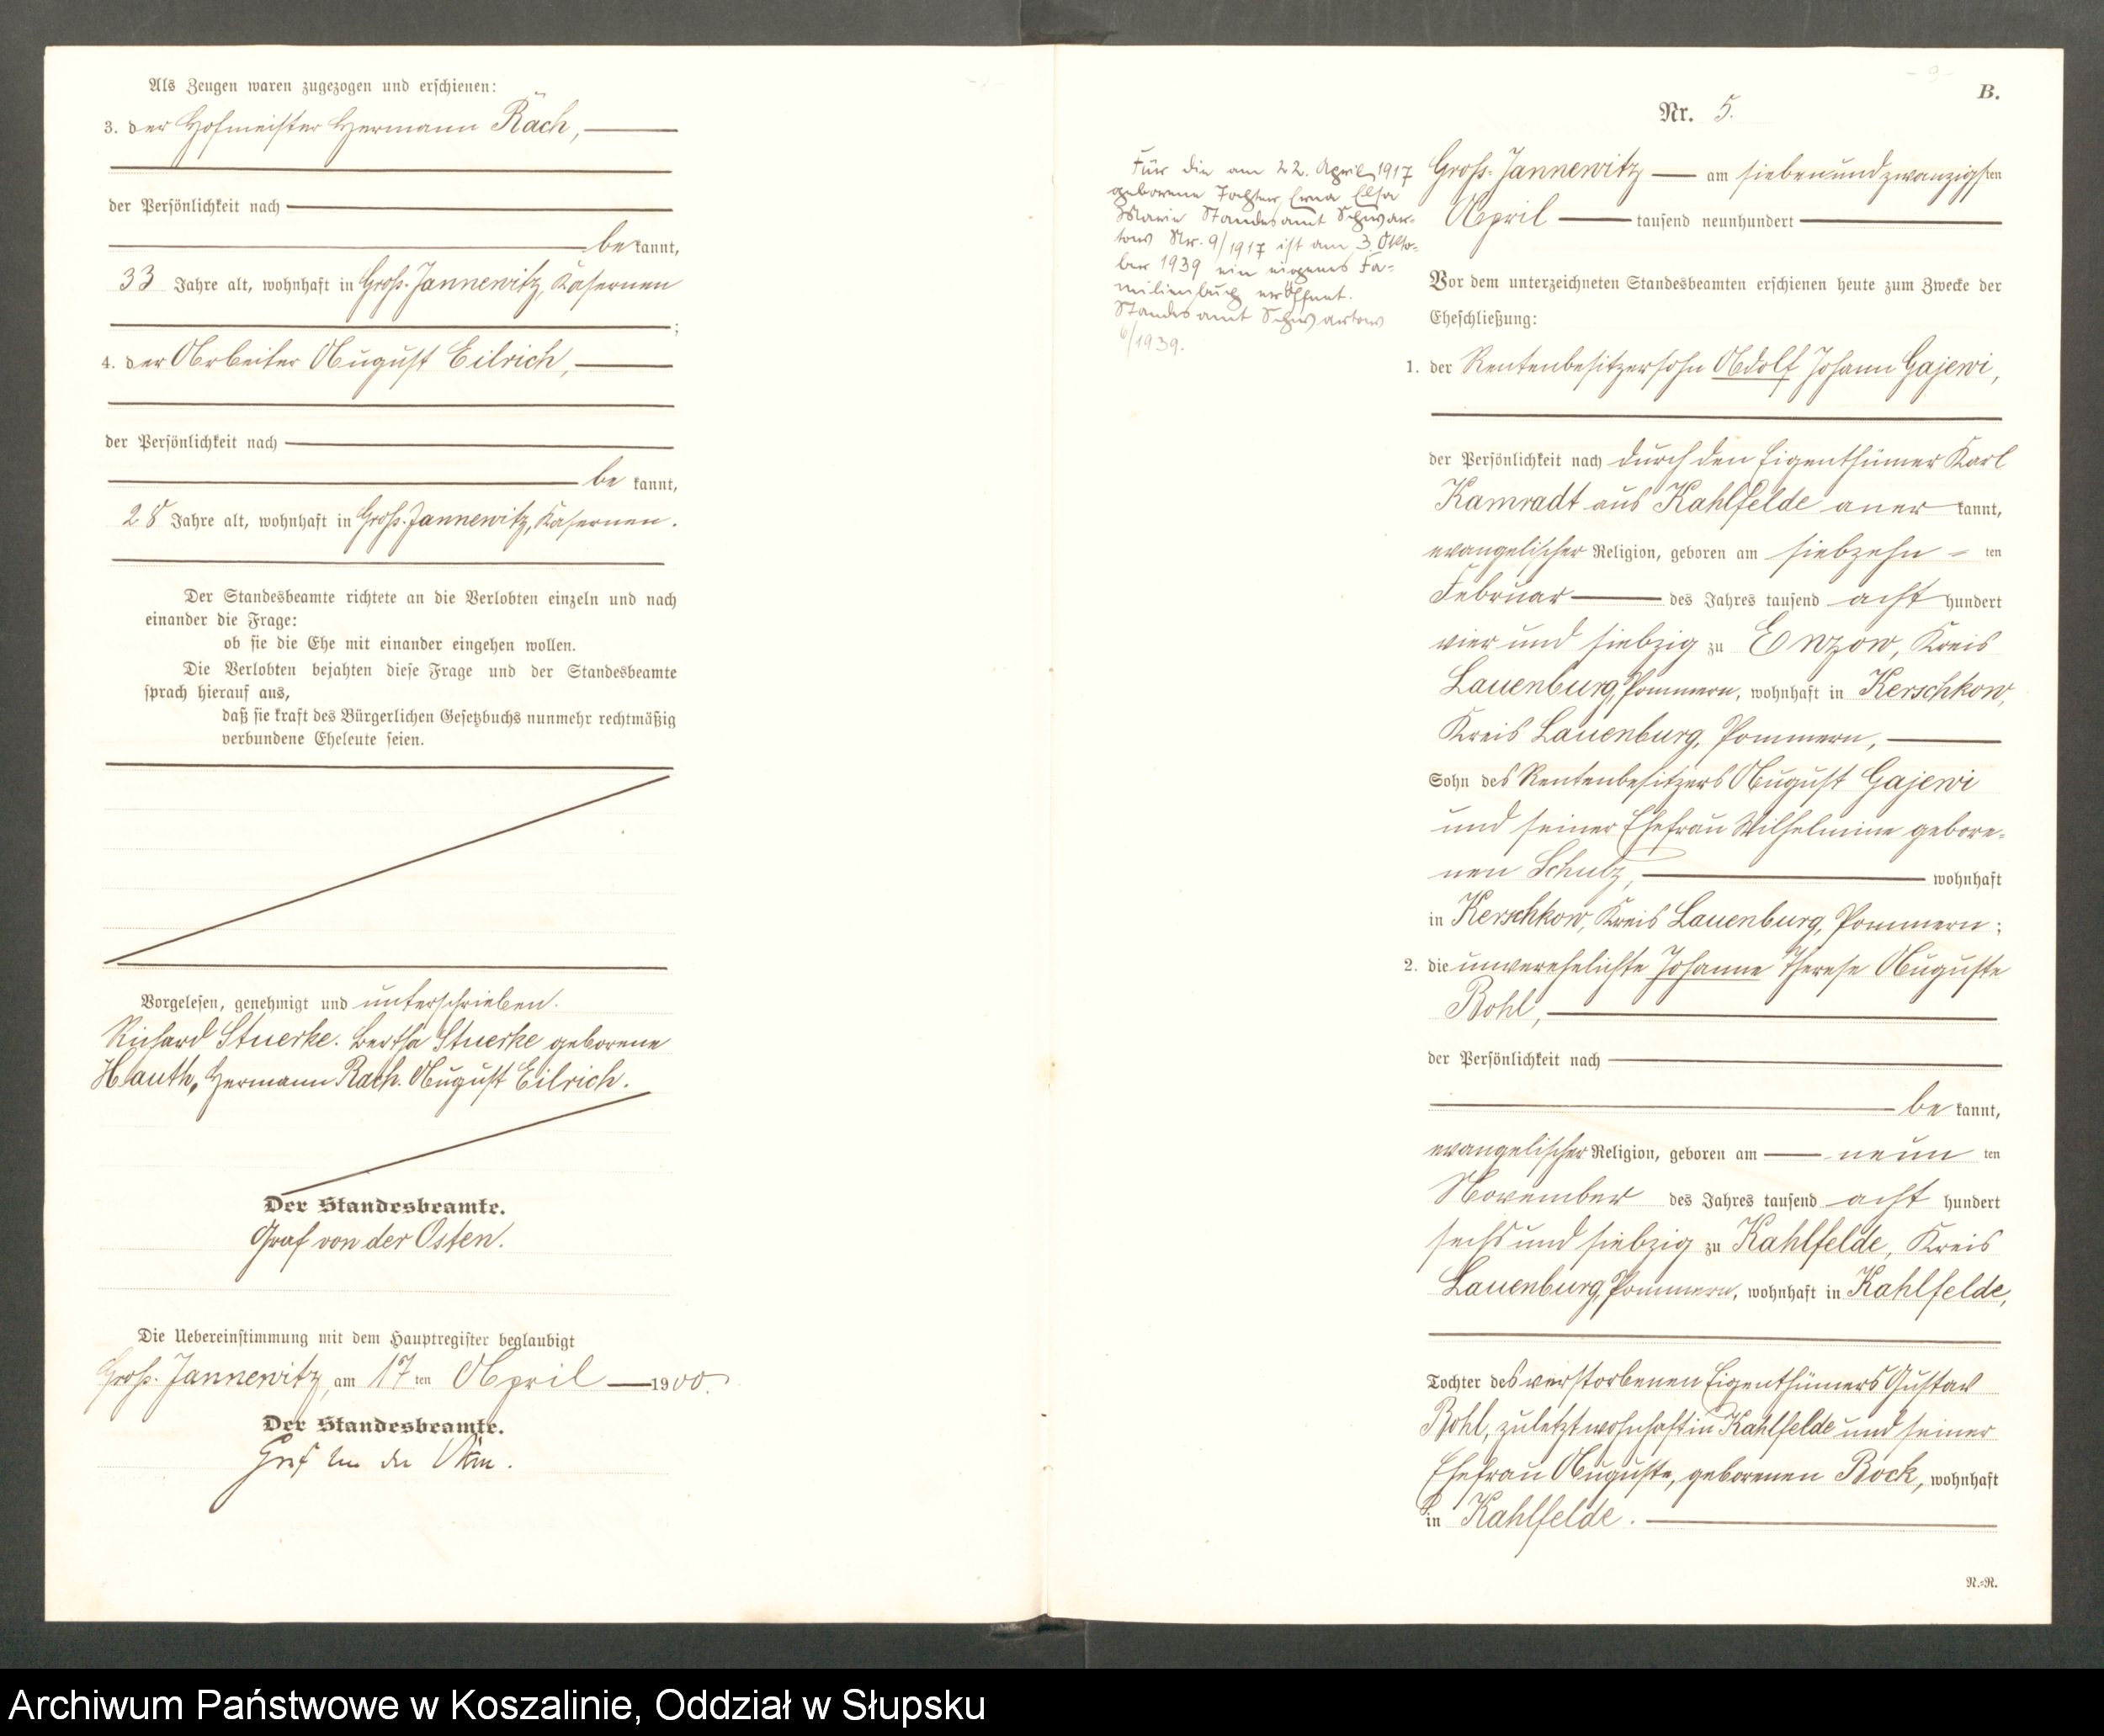 Als Zeugen waren zugezogen und erschienen:
3. der Hofmeister Hermann Rach,
der Persönlichkeit nach
be kannt,
33 Jahre alt, wohnhaft in Groß-Jannewitz, Kasernen
;
4. der Arbeiter August Eilrich,
der Persönlichkeit nach
be kannt,
28 Jahre alt, wohnhaft in Groß-Jannewitz, Kasernen.
Der Standesbeamte richtete an die Verlobten einzeln und nach
einander die Frage:
ob sie die Ehe mit einander eingehen wollen.
Die Verlobten bejahten diese Frage und der Standesbeamte
sprach hierauf aus,
daß sie kraft des Bürgerlichen Gesetzbuchs nunmehr rechtmäßig
verbundene Eheleute seien.
Vorgelesen, genehmigt und unterschrieben.
Richard Stuerke. Bertha Stuerke geborene
Hauth, Hermann Rach. August Eilrich.
Der Standesbeamte.
Graf von der Osten.
Die Uebereinstimmung mit dem Hauptregister beglaubigt
Groß-Jannewitz, am 17 ten April 1900.
Der Standesbeamte.
Graf von der Osten.
- 9 -
B.
Nr. 5.
Für die am 22. April 1917
geborene Tochter Erna Elsa
Marie Standesamt Schwar-
tow Nr. 9/1917 ist am 3. Okto-
ber 1939 ein eigenes Fa-
milienbuch eröffnet.
Standesamt Schwartow
6/1939.
Groß-Jannewitz am siebenundzwanzigsten
April tausend neunhundert
Vor dem unterzeichneten Standesbeamten erschienen heute zum Zwecke der
Eheschließung:
1. der Rentenbesitzersohn Adolf Johann Gajewi,
der Persönlichkeit nach durch den Eigenthümer Karl
Kamradt aus Kahlfelde aner kannt,
evangelischer Religion, geboren am siebzehn - ten
Februar des Jahres tausend acht hundert
vier und siebzig zu Enzow, Kreis
Lauenburg, Pommern, wohnhaft in Kerschkow,
Kreis Lauenburg, Pommern,
Sohn des Rentenbesitzers August Gajewi
und seiner Ehefrau Wilhelmine gebore-
nen Schulz, wohnhaft
in Kerschkow, Kreis Lauenburg, Pommern;
2. die unverehelichte Johanne Therese Auguste
Bohl,
der Persönlichkeit nach
be kannt,
evangelischer Religion, geboren am neun ten
November des Jahres tausend acht hundert
sechs und siebzig zu Kahlfelde, Kreis
Lauenburg, Pommern, wohnhaft in Kahlfelde,
Tochter des verstorbenen Eigenthümers Gustav
Bohl, zuletzt wohnhaft in Kahlfelde und seiner
Ehefrau Auguste, geborenen Bock, wohnhaft
in Kahlfelde.
N.-R.
Archiwum Państwowe w Koszalinie, Oddział w Słupsku